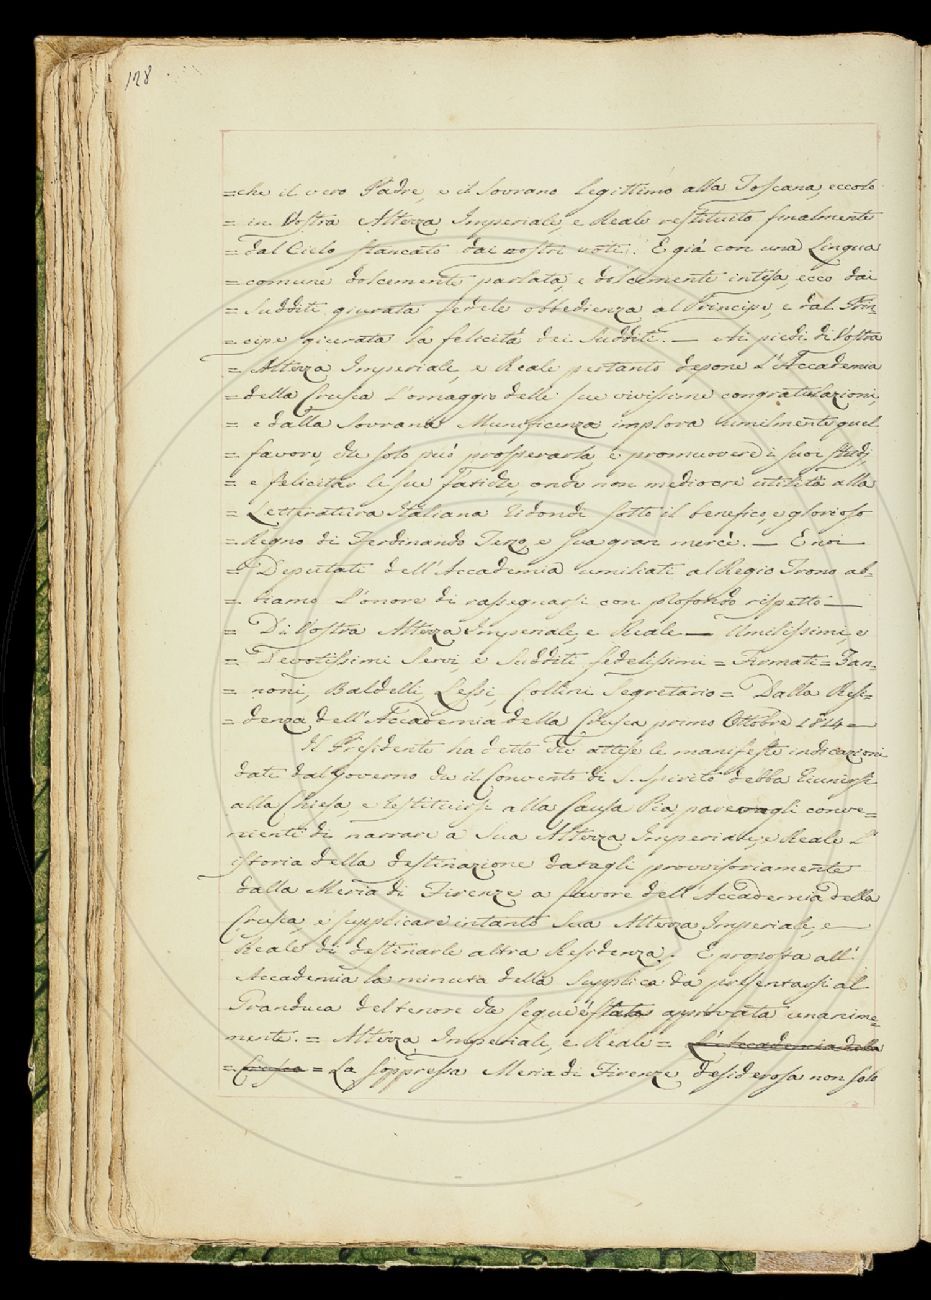 128
=che il vero Padre, e il Sovrano legittimo alla Toscana, eccolo
=in Vostra Altezza Imperiale, e Reale restituito finalmente
=dal Cielo stancato dai nostri voti. E già con una Lingua
=comune dolcemente parlata, e dolcemente intesa, ecco dai
=Sudditi giurata fedele obbedienza al Principe, e dal Prin=
=cipe giurata la felicità dei Sudditi. — Ai piedi di Vostra
=Altezza Imperiale, e Reale pertanto depone L'Accademia
=della Crusca L'omaggio delle sue vivissime congratulazioni,
= e dalla Sovrana Munificenza implora umilmente quel
= favore, che solo può prosperarla, e promuovere i suoi studj,
= e felicitar le sue Fatiche, onde non mediocre utilità alla
= Letteratura Italiana ridondi sotto il benefico, e glorioso
=Regno di Ferdinando Terzo, e sua gran mercè. — E noi —
= Deputati dell'Accademia umiliati al Regio Trono ab=
= biamo L'onore di rassegnarsi con profondo rispetto —
= Di Vostra Altezza Imperiale, e Reale — Umilissimi, e
= Devotissimi Servi, e Sudditi fedelissimi = Firmati = Zan=
= noni, Baldelli, Lessi, Collini Segretario = Dalla Resi=
=denza dell'Accademia della Crusca primo Ottobre 1814 =
Il Presidente ha detto che attese le manifeste indicazioni
date dal Governo che il Convento di S. Spirito debba riunirsi
alla Chiesa, e restituirsi alla Causa Pia, parevagli conve=
niente di narrare a Sua Altezza Imperiale, e Reale L'
istoria della destinazione datagli provvisoriamente
dalla Meria di Firenze a favore dell'Accademia della
Crusca e supplicare intanto Sua Altezza Imperiale, e —
Reale di destinarle altra Residenza. E proposta all'
Accademia la minuta della Supplica da presentarsi al
Granduca del tenore che segue è stata approvata unanime=
mente. = Altezza Imperiale, e Reale = L'Accademia della
= Crusca = La soppressa Meria di Firenze desiderosa non solo